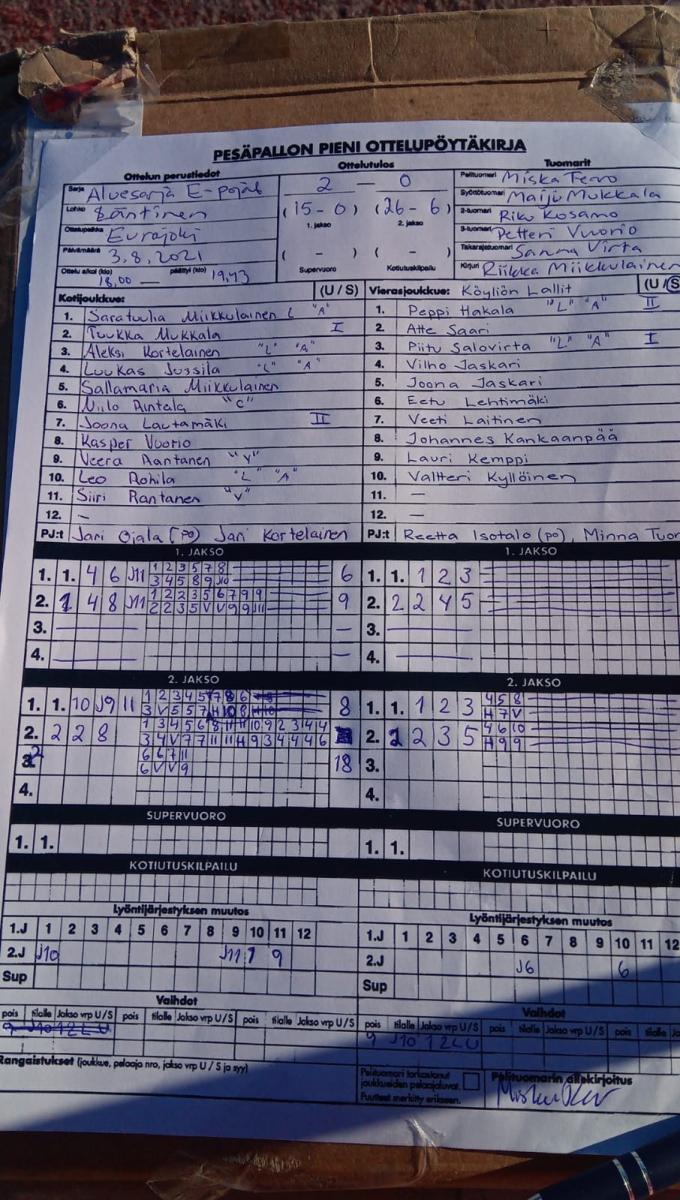 PESÄPALLON PIENI OTTELUPÖYTÄKIRJA
Ottelun perustiedot
Sarja Aluesarja E-pojat
Lohko Läntinen
Ottelupaikka Eurajoki
Päivämäärä 3.8.2021
Ottelu alkoi (klo) 18.00 — päättyi (klo) 19.43
Ottelutulos
2 — 0
(15 - 0) (26 - 6)
1. jakso 2. jakso
( - ) ( - )
Supervuoro Kotiutuskilpailu
Tuomarit
Pelituomari Miska Tervo
Syöttötuomari Maiju Mukkala
2-tuomari Riku Kosamo
3-tuomari Petteri Vuorio
Takarajatuomari Sanna Virta
Kirjuri Riikka Miikkulainen
Kotijoukkue: (U / S)
1. Saratuulia Miikkulainen L "A"
2. Tuukka Mukkala I
3. Aleksi Kortelainen "L" "A"
4. Luukas Jussila "L" "A"
5. Sallamaria Miikkulainen
6. Niilo Rintala "C"
7. Joona Lautamäki II
8. Kasper Vuorio
9. Veera Rantanen "V"
10. Leo Rohila "L" "A"
11. Siiri Rantanen "V"
12. -
PJ:t Jari Ojala (po) Jari Kortelainen
Vierasjoukkue: Köyliön Lallit (U / S
1. Peppi Hakala "L" "A" II
2. Atte Saari
3. Piitu Salovirta "L" "A" I
4. Vilho Jaskari
5. Joona Jaskari
6. Eetu Lehtimäki
7. Veeti Laitinen
8. Johannes Kankaanpää
9. Lauri Kemppi
10. Valtteri Kyllöinen
11. —
12. —
PJ:t Reetta Isotalo (po), Minna Tuor
1. JAKSO
1. 1. 4 6 J11 1 2 3 5 7 8 6
3 4 5 8 9 J10
2. 1 4 8 J11 1 2 2 3 5 6 7 9 9 9
2 2 3 5 V V 9 9 J11
3. —
4. —
1. JAKSO
1. 1. 1 2 3
2. 2 2 4 5
3. —
4. —
2. JAKSO
1. 1. 10 J9 11 1 2 3 4 5 7 8 6 8
3 V 5 5 7 H 10 8 H 10
2. 2 2 8 1 3 4 5 6 8 11 H 10 9 2 3 4 4
3 4 V 7 7 11 11 H 9 3 4 4 4 6
2 6 6 7 11 18
6 V V 9
4.
2. JAKSO
1. 1. 1 2 3 4 5 8
H 7 V
2. 2 2 3 5 4 6 10
H 9 9
3.
4.
SUPERVUORO
1. 1.
SUPERVUORO
1. 1.
KOTIUTUSKILPAILU
KOTIUTUSKILPAILU
Lyöntijärjestyksen muutos
1.J 1 2 3 4 5 6 7 8 9 10 11 12
2.J J10 J11 1 9
Sup
Lyöntijärjestyksen muutos
1.J 1 2 3 4 5 6 7 8 9 10 11 12
2.J J6 6
Sup
Vaihdot
pois tilalle Jakso vrp U/S pois tilalle Jakso vrp U/S pois tilalle Jakso vrp U/S
9 J10 1 2 L U
Vaihdot
pois tilalle Jakso vrp U/S pois tilalle Jakso vrp U/S pois tilalle
9 J10 1 2 L U
Rangaistukset (joukkue, pelaaja nro, jakso vrp U / S ja syy)
Pelituomari tarkastanut
joukkueiden pelaajaluvat.
Puutteet merkitty erikseen.
Pelituomarin allekirjoitus